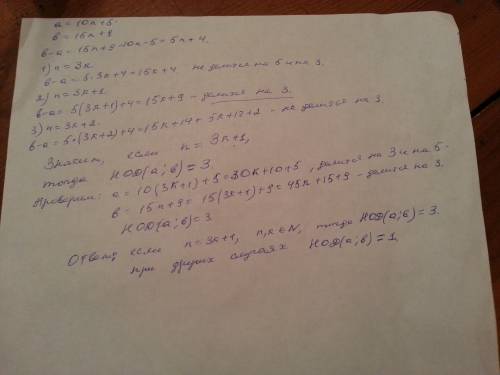 a = 10n+5.
b = 15n+9
b-a = 15n+9-10n-5 = 5n+4.
1) n=3k
b-a = 5·3k+4 = 15k+4 не делится на 5 и на 3.
2) n=3k+1.
b-a = 5(3k+1)+4 = 15k+9 - делится на 3.
3) n=3k+2.
b-a = 5·(3k+2)+4 = 15k+14 = - не делится на 3.
Значит, если n = 3k+1,
тогда НОД(a;b) = 3.
Проверим: a = 10(3k+1)+5 = 30k+10+5, делится на 3 и на 5.
b = 15n+9 = 15(3k+1)+9 = 45k+15+9 - делится на 3.
НОД(a;b)=3
Ответ: если n=3k+1, n,k∈N, тогда НОД(a;b)=3.
при других случаях НОД(a;b)=1.